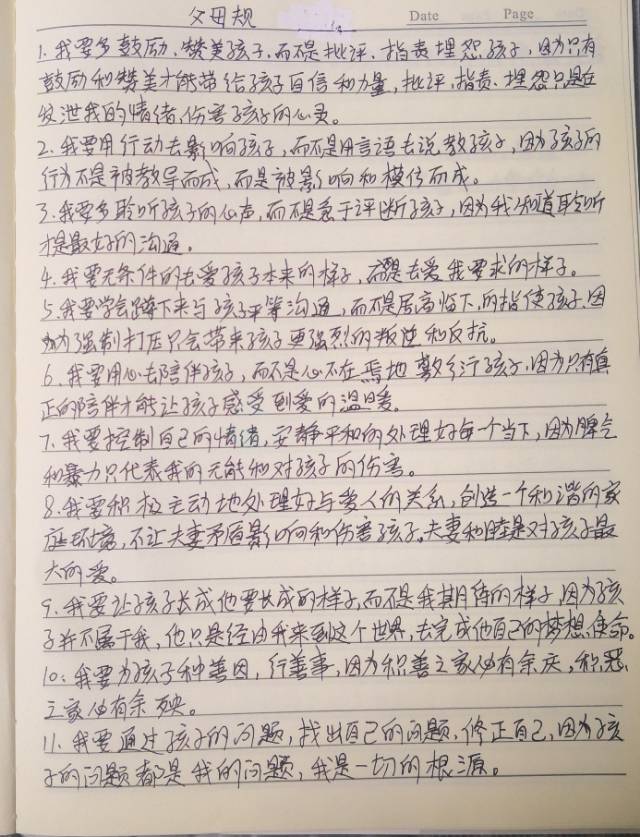 父母规
Date Page
1. 我要多鼓励、赞美孩子,而不是批评、指责埋怨孩子,因为只有
鼓励和赞美才能带给孩子自信和力量,批评、指责、埋怨只是在
发泄我的情绪,伤害孩子的心灵。
2. 我要用行动去影响孩子,而不是用言语去说教孩子,因为孩子的
行为不是被教导而成,而是被影响和模仿而成。
3. 我要多聆听孩子的心声,而不是急于评断孩子,因为我知道聆听
才是最好的沟通。
4. 我要无条件的去爱孩子本来的样子,而不是去爱我要求的样子。
5. 我要学会蹲下来与孩子平等沟通,而不是居高临下,的指使孩子,因
为强制打压只会带来孩子更强烈的叛逆和反抗。
6. 我要用心去陪伴孩子,而不是心不在焉地敷衍孩子,因为只有真
正的陪伴才能让孩子感受到爱的温暖。
7. 我要控制自己的情绪,安静平和的处理好每一个当下,因为脾气
和暴力只代表我的无能和对孩子的伤害。
8. 我要积极主动地处理好与爱人的关系,创造一个和谐的家
庭环境,不让夫妻矛盾影响和伤害孩子。夫妻和睦是对孩子最
大的爱。
9. 我要让孩子长成他要长成的样子,而不是我期待的样子,因为孩
子并不属于我,他只是经由我来到这个世界,去完成他自己的梦想、使命。
10: 我要为孩子种善因,行善事,因为积善之家必有余庆,积恶
之家必有余殃。
11. 我要通过孩子的问题,找出自己的问题,修正自己,因为孩
子的问题都是我的问题,我是一切的根源。